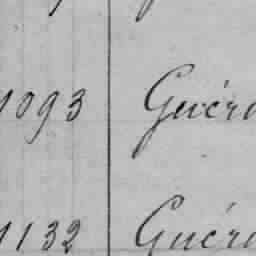 1093 Guér
1132 Guér